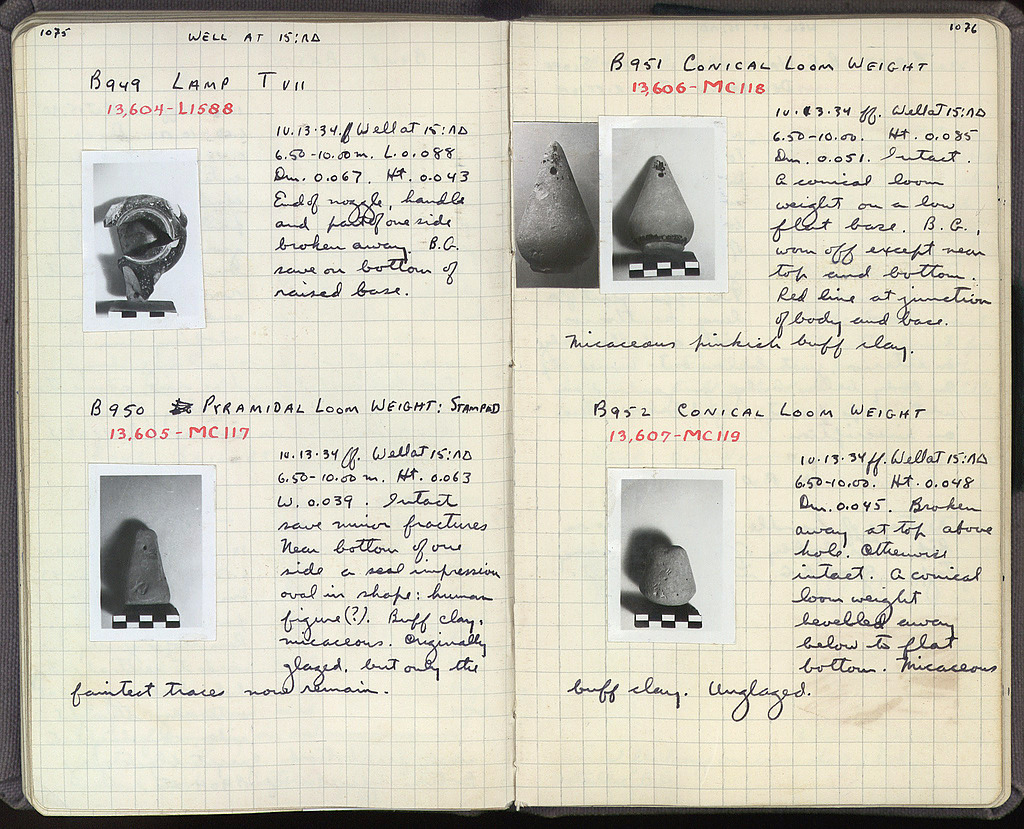 1075
WELL AT 15:ΛΔ
B949 LAMP T VII
13,604-L1588
10.13.34 ff Well at 15:ΛΔ
6.50-10.00 m. L. 0.088
Dm. 0.067. Ht. 0.043
End of nozzle, handle
and part of one side
broken away. B.G.
save on bottom of
raised base.
B950 PYRAMIDAL LOOM WEIGHT: STAMPED
13,605-MC117
10.13.34 ff. Well at 15:ΛΔ
6.50-10.00 m. Ht. 0.063
W. 0.039. Intact
save minor fractures
Near bottom of one
side a seal impression
oval in shape: human
figure (?). Buff clay,
micaceous. Originally
glazed, but only the
faintest traces now remain.
1076
B951 CONICAL LOOM WEIGHT
13,606-MC118
10.13.34 ff. Well at 15:ΛΔ
6.50-10.00. Ht. 0.085
Dm. 0.051. Intact.
A conical loom
weight on a low
flat base. B.G.,
worn off except near
top and bottom.
Red line at junction
of body and base.
Micaceous pinkish buff clay.
B952 CONICAL LOOM WEIGHT
13,607-MC119
10.13.34 ff. Well at 15:ΛΔ
6.50-10.00. Ht. 0.048
Dm. 0.045. Broken
away at top above
hole. Otherwise
intact. A conical
loom weight
bevelled away
below to flat
bottom. Micaceous
buff clay. Unglazed.